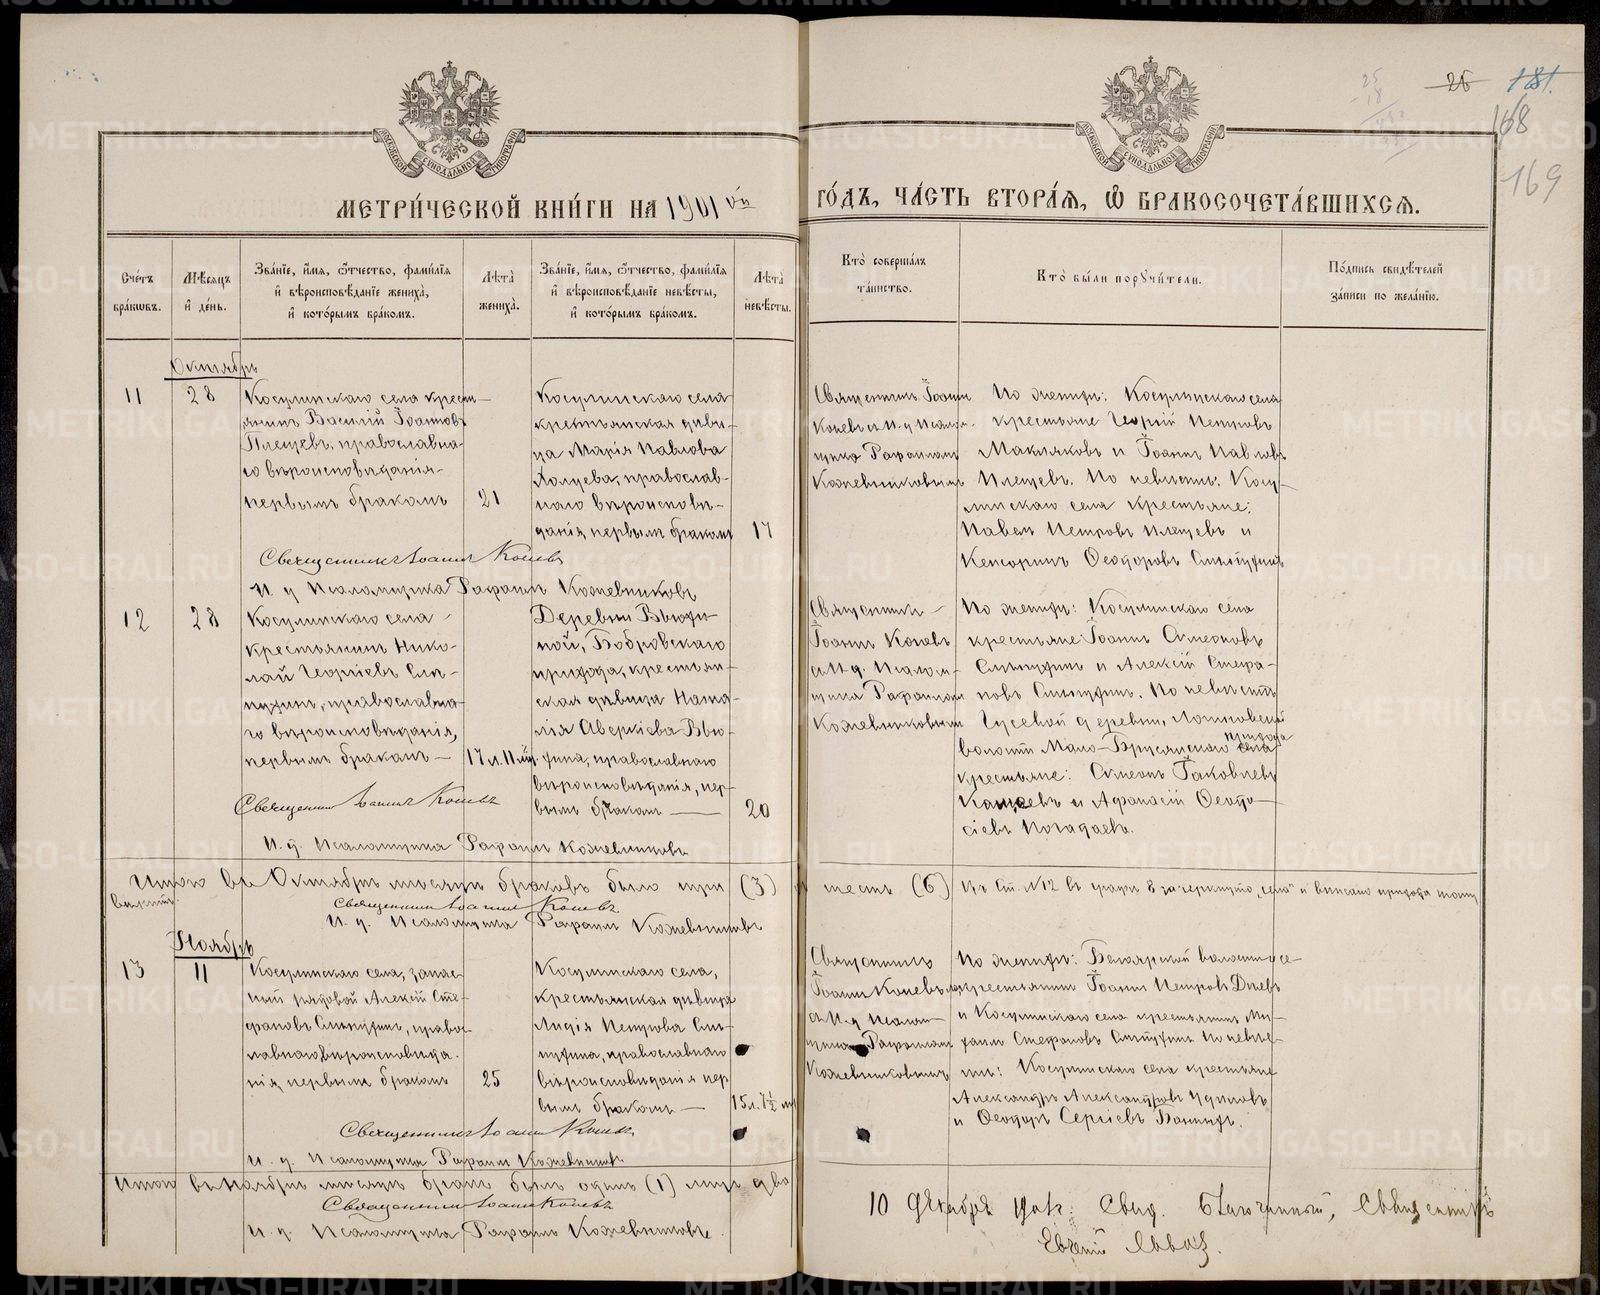 25
18
25
181.
168
169
МЕТРИ́ЧЕСКОЙ КНИ́ГИ НА 1901 ый ГО́ДЪ, ЧА́СТЬ ВТОРА́Ѧ, Ѽ БРАКОСОЧЕТА́ВШИХСѦ.
Сче́тъ бра́кѡвъ.
Мѣ́сѧцъ и҆ де́нь.
Зва́нїе, и҆́мѧ, ѻ҆́тчество, фами́лїѧ и҆ вѣроисповѣ́данїе жениха̀, и҆ кото́рымъ бра́комъ.
Лѣ́та̀ жениха̀.
Зва́нїе, и҆́мѧ, ѻ҆́тчество, фами́лїѧ и҆ вѣроисповѣ́данїе невѣ́сты, и҆ кото́рымъ бра́комъ.
Лѣ́та̀ невѣ́сты.
Кто̀ соверша́лъ та́инство.
Кто̀ бы́ли порꙋчи́тели.
По́дпись свидѣ́телей за́писи по жела́нїю.
Октябрь
11
28
Косулинскаго села крест-
янинъ Василій Іоанновъ
Плещевъ, православна-
го вѣроисповѣданія
первымъ бракомъ
21
Косулинскаго села
крестьянская дѣви-
ца Марія Павлова
православ-
наго вѣроисповѣ-
данія первымъ бракомъ
17
Священникъ Іоаннъ
Коневъ и И. д. Псалом-
щика Рафаилъ
Кожевниковымъ
По женихѣ: Косулинскаго села
крестьяне Георгій Петровъ
Макляковъ и Іоаннъ Павловъ
Плещевъ. По невѣстѣ: Косу-
линскаго села крестьяне:
Павелъ Петровъ Плещевъ и
Кенсоринъ Ѳеодоровъ Слѣпухинъ
Священникъ Іоаннъ Коневъ
И. д. Псаломщика Рафаилъ Кожевниковъ
12
28
Косулинскаго села
крестьянинъ Нико-
лай Георгіевъ Слѣ-
пухинъ, православна-
го вѣроисповѣданія,
первымъ бракомъ —
17 л. 11 м.
Деревни Вьюхи-
ной, Бобровскаго
прихода, крестьян-
ская дѣвица Ната-
лія Аверкіева Вью-
хина, православнаго
вѣроисповѣданія, пер-
вымъ бракомъ —
20
Священникъ
Іоаннъ Коневъ
и И. д. Псалом-
щика Рафаилъ
Кожевниковымъ
По женихѣ: Косулинскаго села
крестьяне Іоаннъ Симеоновъ
Слѣпухинъ и Алексій Стефа-
новъ Слѣпухинъ. По невѣстѣ
Гусевой деревни, Логиновской
волости Мало-Брусянскаго села прихода
крестьяне: Симеонъ Іаковлевъ
и Афанасій Ѳеодо-
сіевъ Погадаевъ.
Священникъ Іоаннъ Коневъ
И. д. Псаломщика Рафаилъ Кожевниковъ
Итого въ Октябрѣ мѣсяцѣ браковъ было три (3) шесть (6)
Къ Ст. №12 въ графѣ 8 зачеркнуто „села" и вписано прихода
Священникъ Іоаннъ Коневъ
И. д. Псаломщика Рафаилъ Кожевниковъ
Ноябрь
13
11
Косулинскаго села, запас-
ный рядовой Алексій Сте-
фановъ Слѣпухинъ, право-
славнаго вѣроисповѣда-
нія, первымъ бракомъ
25
Косулинскаго села,
крестьянская дѣвица
Лидія Петрова Слѣ-
пухина, православнаго
вѣроисповѣданія пер
вымъ бракомъ —
15 л. 7½ м
Священникъ
Іоаннъ Коневъ
и И. д. Псалом-
щика Рафаилъ
Кожевниковымъ
По женихѣ: Белоярской волости
крестьянинъ Іоаннъ Петровъ
и Косулинскаго села крестьянинъ Ми-
хаилъ Стефановъ Слѣпухинъ. По невѣс-
тѣ: Косулинскаго села крестьяне
Александръ Александровъ
и Ѳеодоръ Сергіевъ
Священникъ Іоаннъ Коневъ
И. д. Псаломщика Рафаилъ Кожевниковъ
Итого въ Ноябрѣ мѣсяцѣ бракъ былъ одинъ (1) лицъ два
Священникъ Іоаннъ Коневъ
И. д. Псаломщика Рафаилъ Кожевниковъ
10 Декабря Свид. Благочинный, Священникъ
Евгеній
METRIKI.GASO-URAL.RU